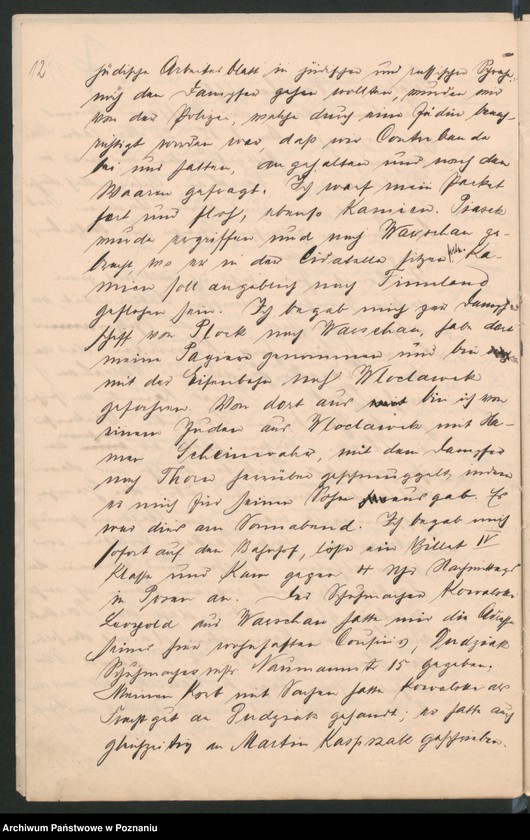 12
jüdische Arbeiterblatt in jüdischer und russischer Sprache,
nach dem Dampfer gehen wollten, wurden wir
von der Polizei, welche durch eine Jüdin benach-
richtigt worden war, daß wir Contrebande
bei uns hatten, angehalten und nach den
Waaren gefragt. Ich warf mein Packet
fort und floh, ebenso Kamien. Piasek
wurde ergriffen und nach Warschau ge-
bracht, wo er in der Citadelle sitzen soll. Ka-
mien soll angeblich nach Finnland
geflohen sein. Ich begab mich per Dampf-
schiff von Plock nach Warschau, hab dort
meine Papiere genommen und bin
mit der Eisenbahn nach Wloclawek
gefahren. Von dort aus bin ich von
einem Juden aus Wloclawek mit Na-
men, mit dem Dampfer
nach Thorn herüber geschmuggelt, indem
er mich für seinen Sohn ausgab. Es
war dies am Sonnabend. Ich begab mich
sofort auf den Bahnhof, löste ein Billet IV
Klasse und kam gegen 4 Uhr Nachmittags
in Posen an. Der Schuhmacher Kowalski
Leopold aus Warschau hatte mir die Adresse
seines hier wohnhaften Cousins,
Schuhmacher, Naumannstr 15 gegeben.
Meinen Korb mit Sachen hatte Kowalski als
Frachtgut an gesandt; er hatte auch
gleichzeitig an Martin Kasprzak geschrieben.
Archiwum Państwowe w Poznaniu